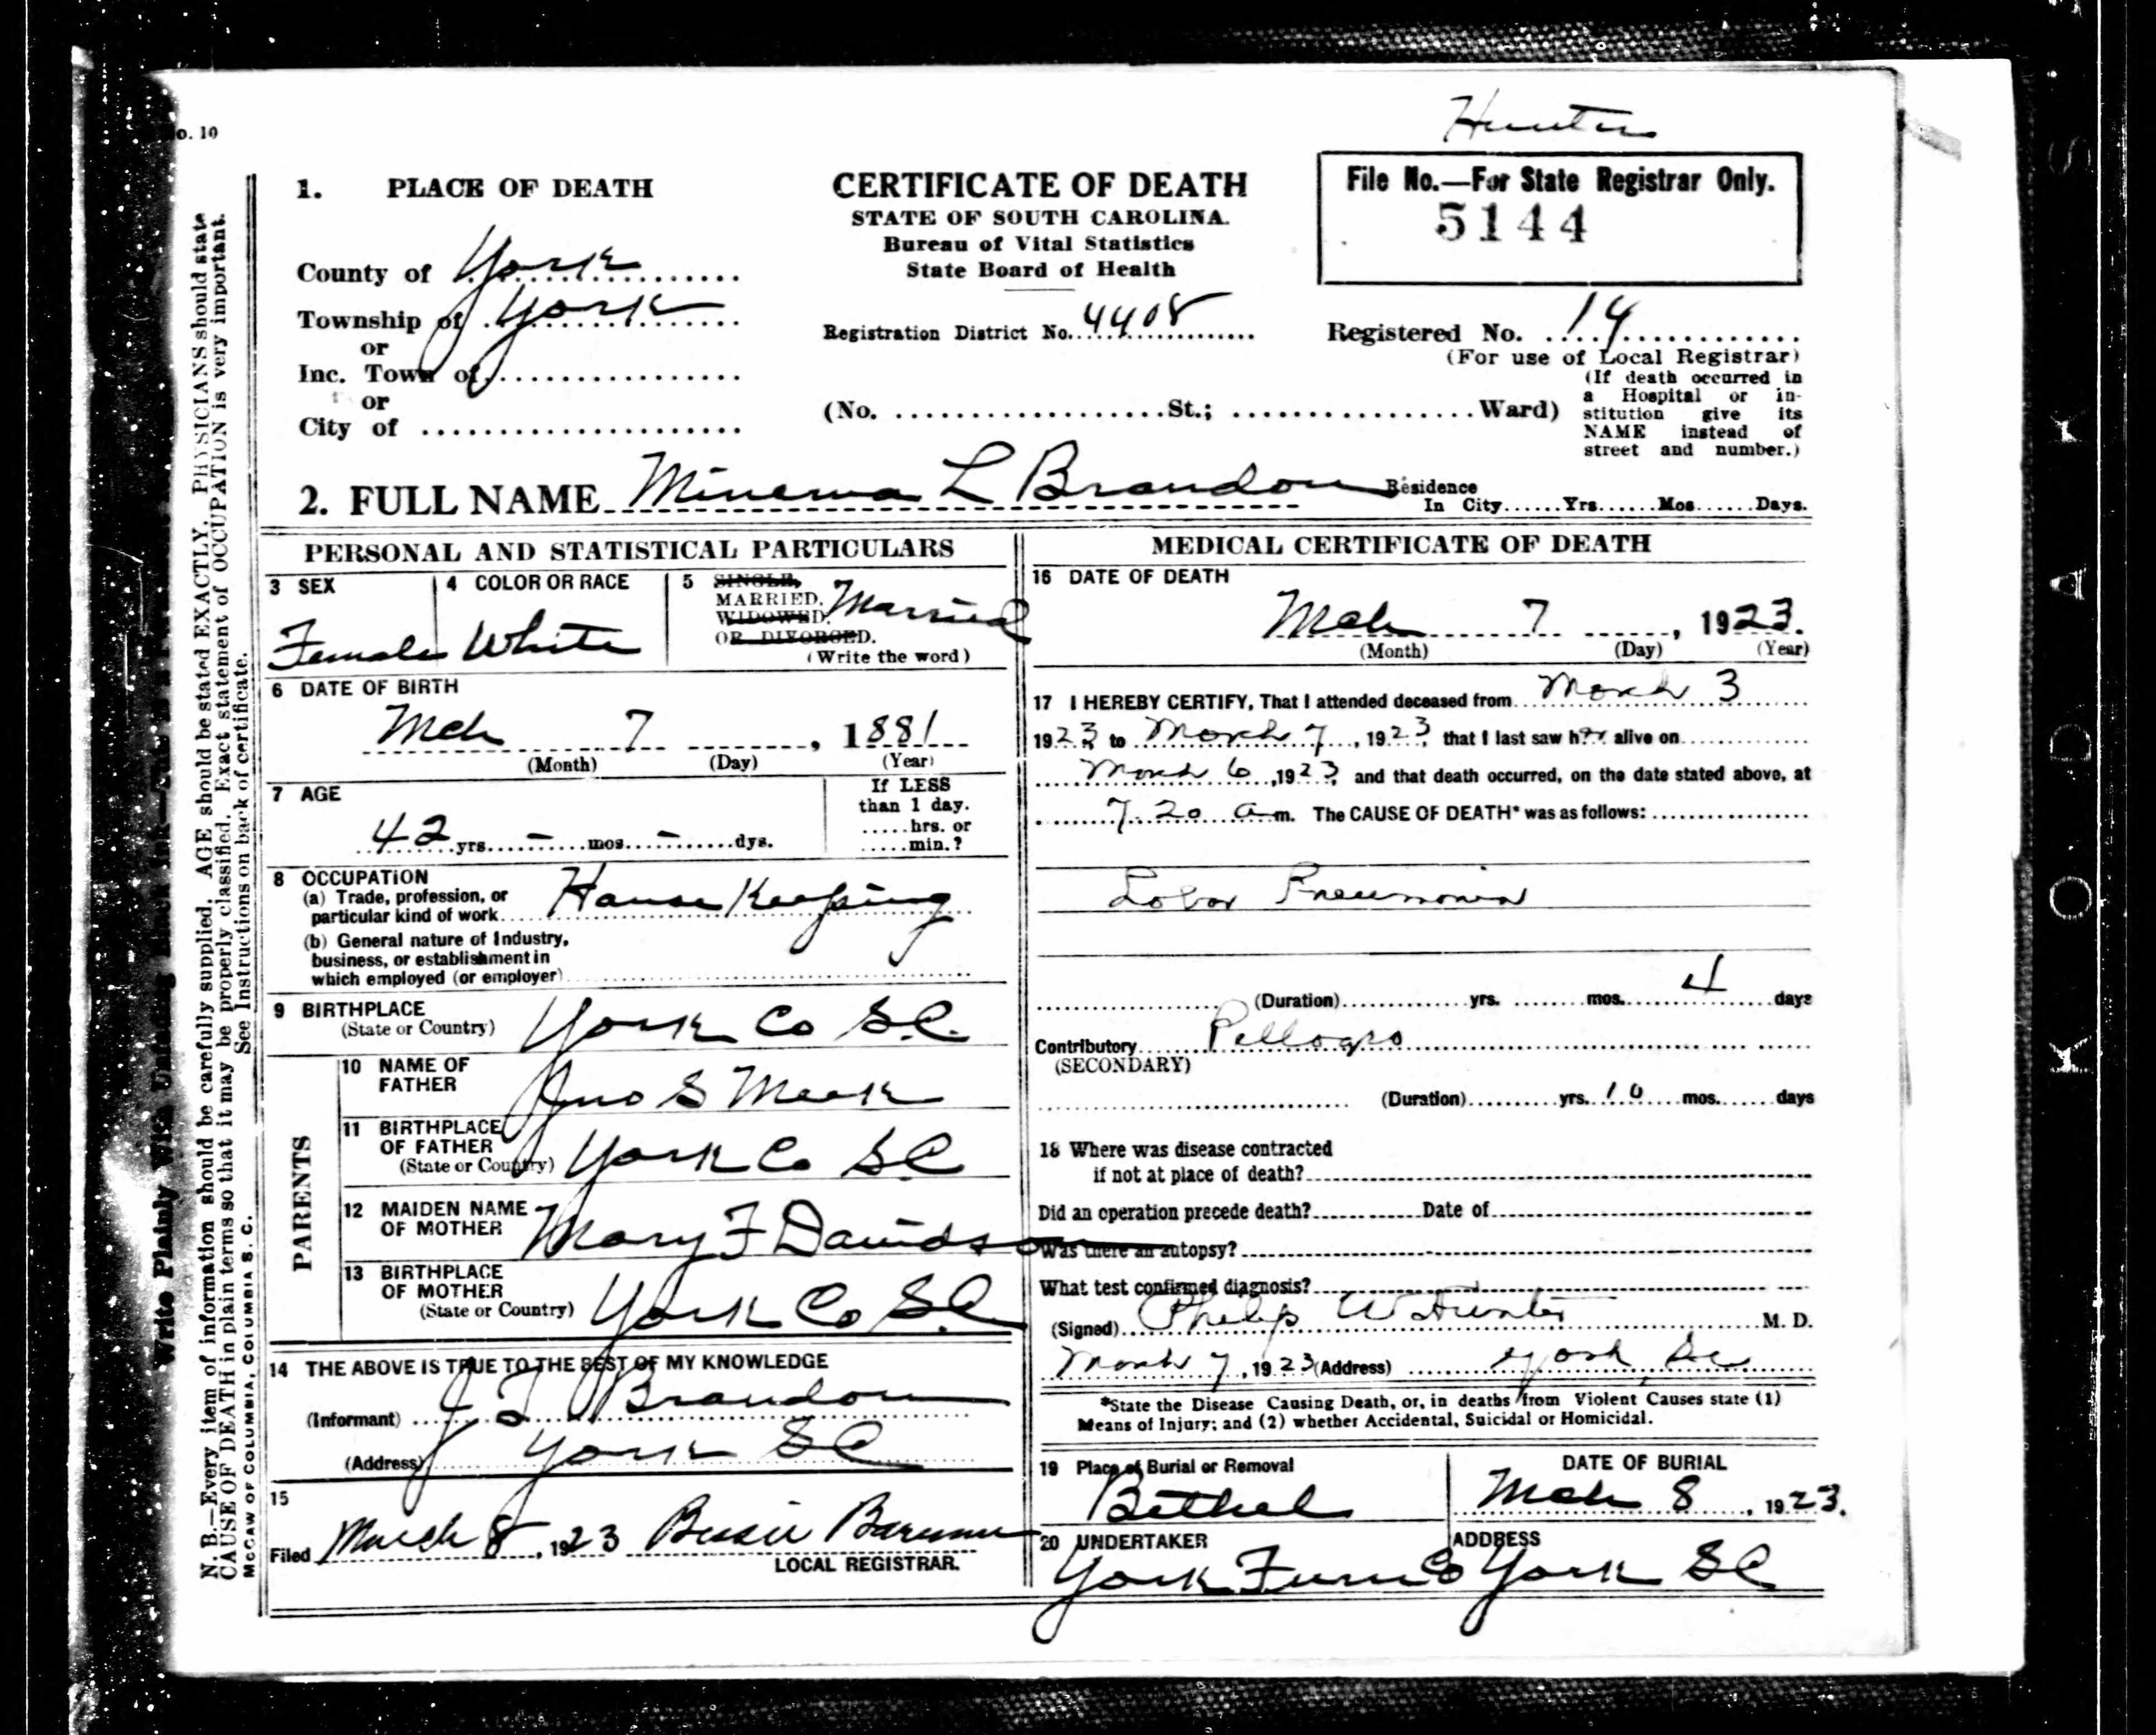 Hunter
o. 10
1. PLACE OF DEATH
County of York
Township of York
or
Inc. Town of
or
City of
CERTIFICATE OF DEATH
STATE OF SOUTH CAROLINA.
Bureau of Vital Statistics
State Board of Health
Registration District No. 4408
File No.—For State Registrar Only.
5144
Registered No. 14
(For use of Local Registrar)
(No. St.; Ward)
(If death occurred in
a Hospital or in-
stitution give its
NAME instead of
street and number.)
2. FULL NAME Minerva L Brandon
Residence
In City Yrs. Mos. Days.
PERSONAL AND STATISTICAL PARTICULARS
3 SEX
Female
4 COLOR OR RACE
White
5 SINGLE,
MARRIED,
WIDOWED,
OR DIVORCED.
Married
(Write the word)
6 DATE OF BIRTH
Mch 7, 1881
(Month) (Day) (Year)
7 AGE
42 yrs. - mos. - dys.
If LESS
than 1 day.
hrs. or
min.?
8 OCCUPATION
(a) Trade, profession, or
particular kind of work House Keeping
(b) General nature of Industry,
business, or establishment in
which employed (or employer)
9 BIRTHPLACE
(State or Country) York Co S.C.
PARENTS
10 NAME OF
FATHER Jno S Meek
11 BIRTHPLACE
OF FATHER
(State or Country) York Co SC
12 MAIDEN NAME
OF MOTHER Mary F Davidson
13 BIRTHPLACE
OF MOTHER
(State or Country) York Co S.C
14 THE ABOVE IS TRUE TO THE BEST OF MY KNOWLEDGE
(Informant) J Brandon
(Address) York SC
15
Filed March 8, 1923 Bessie
LOCAL REGISTRAR.
MEDICAL CERTIFICATE OF DEATH
16 DATE OF DEATH
Mch 7, 1923.
(Month) (Day) (Year)
17 I HEREBY CERTIFY, That I attended deceased from March 3
1923 to March 7, 1923, that I last saw her alive on
March 6, 1923, and that death occurred, on the date stated above, at
7 20 a m. The CAUSE OF DEATH* was as follows:
Lobar Pneumonia
(Duration) yrs. mos. 4 days
Contributory Pellagra
(SECONDARY)
(Duration) yrs. 10 mos. days
18 Where was disease contracted
if not at place of death?
Did an operation precede death? Date of
Was there an autopsy?
What test confirmed diagnosis?
(Signed) Philip W Hunter M. D.
March 7, 1923 (Address) York Sc
*State the Disease Causing Death, or, in deaths from Violent Causes state (1)
Means of Injury; and (2) whether Accidental, Suicidal or Homicidal.
19 Place of Burial or Removal
Bethel
DATE OF BURIAL
Mch 8, 1923.
20 UNDERTAKER
York Furn Co
ADDRESS
York SC
N. B.—Every item of information should be carefully supplied. AGE should be stated EXACTLY. PHYSICIANS should state
CAUSE OF DEATH in plain terms so that it may be properly classified. Exact statement of OCCUPATION is very important.
See Instructions on back of certificate.
McCAW OF COLUMBIA, COLUMBIA S. C.
Write Plainly With Unfading Black Ink—
KODAK S